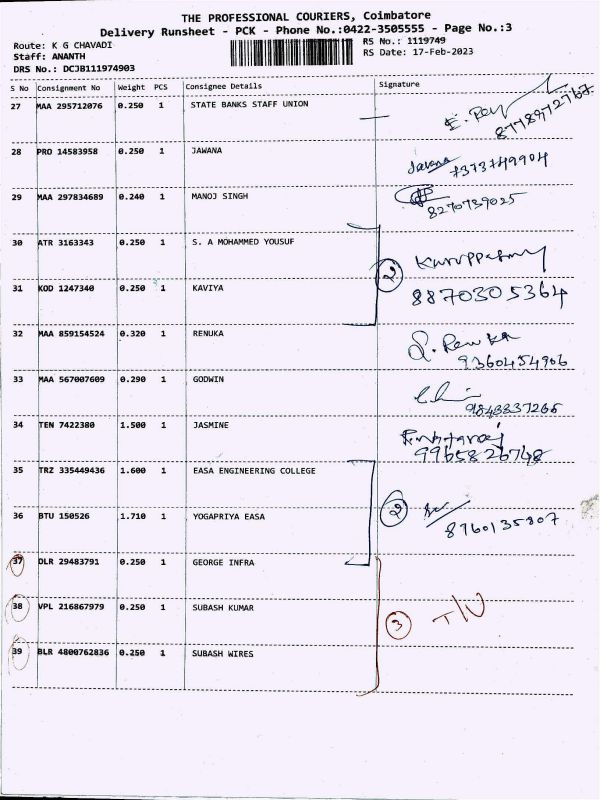 THE PROFESSIONAL COURIERS, Coimbatore
Delivery Runsheet - PCK - Phone No.:0422-3505555 - Page No.:3
Route: K G CHAVADI
RS No.: 1119749
Staff: ANANTH
RS Date: 17-Feb-2023
DRS No.: DCJB111974903
S No Consignment No Weight PCS Consignee Details Signature
27 MAA 295712076 0.250 1 STATE BANKS STAFF UNION
8778972767
28 PRO 14583958 0.250 1 JAWANA Jawana
7373749904
29 MAA 297834689 0.240 1 MANOJ SINGH
8270739025
30 ATR 3163343 0.250 1 S. A MOHAMMED YOUSUF
2 Kuruppasamy
31 KOD 1247340 0.250 1 KAVIYA 8870305364
32 MAA 859154524 0.320 1 RENUKA S. Renuka
9360454906
33 MAA 567007609 0.290 1 GODWIN
9843837265
34 TEN 7422380 1.500 1 JASMINE
9965826748
35 TRZ 335449436 1.600 1 EASA ENGINEERING COLLEGE
2
36 BTU 150526 1.710 1 YOGAPRIYA EASA 8760135807
37 DLR 29483791 0.250 1 GEORGE INFRA
38 VPL 216867979 0.250 1 SUBASH KUMAR 3 T/U
39 BLR 4800762836 0.250 1 SUBASH WIRES